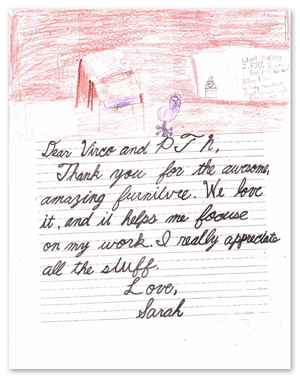 Dear Virco and PTA,
Thank you for the awesome,
amazing furniture. We love
it, and it helps me focuse
on my work. I really appreciate
all the stuff.
Love,
Sarah